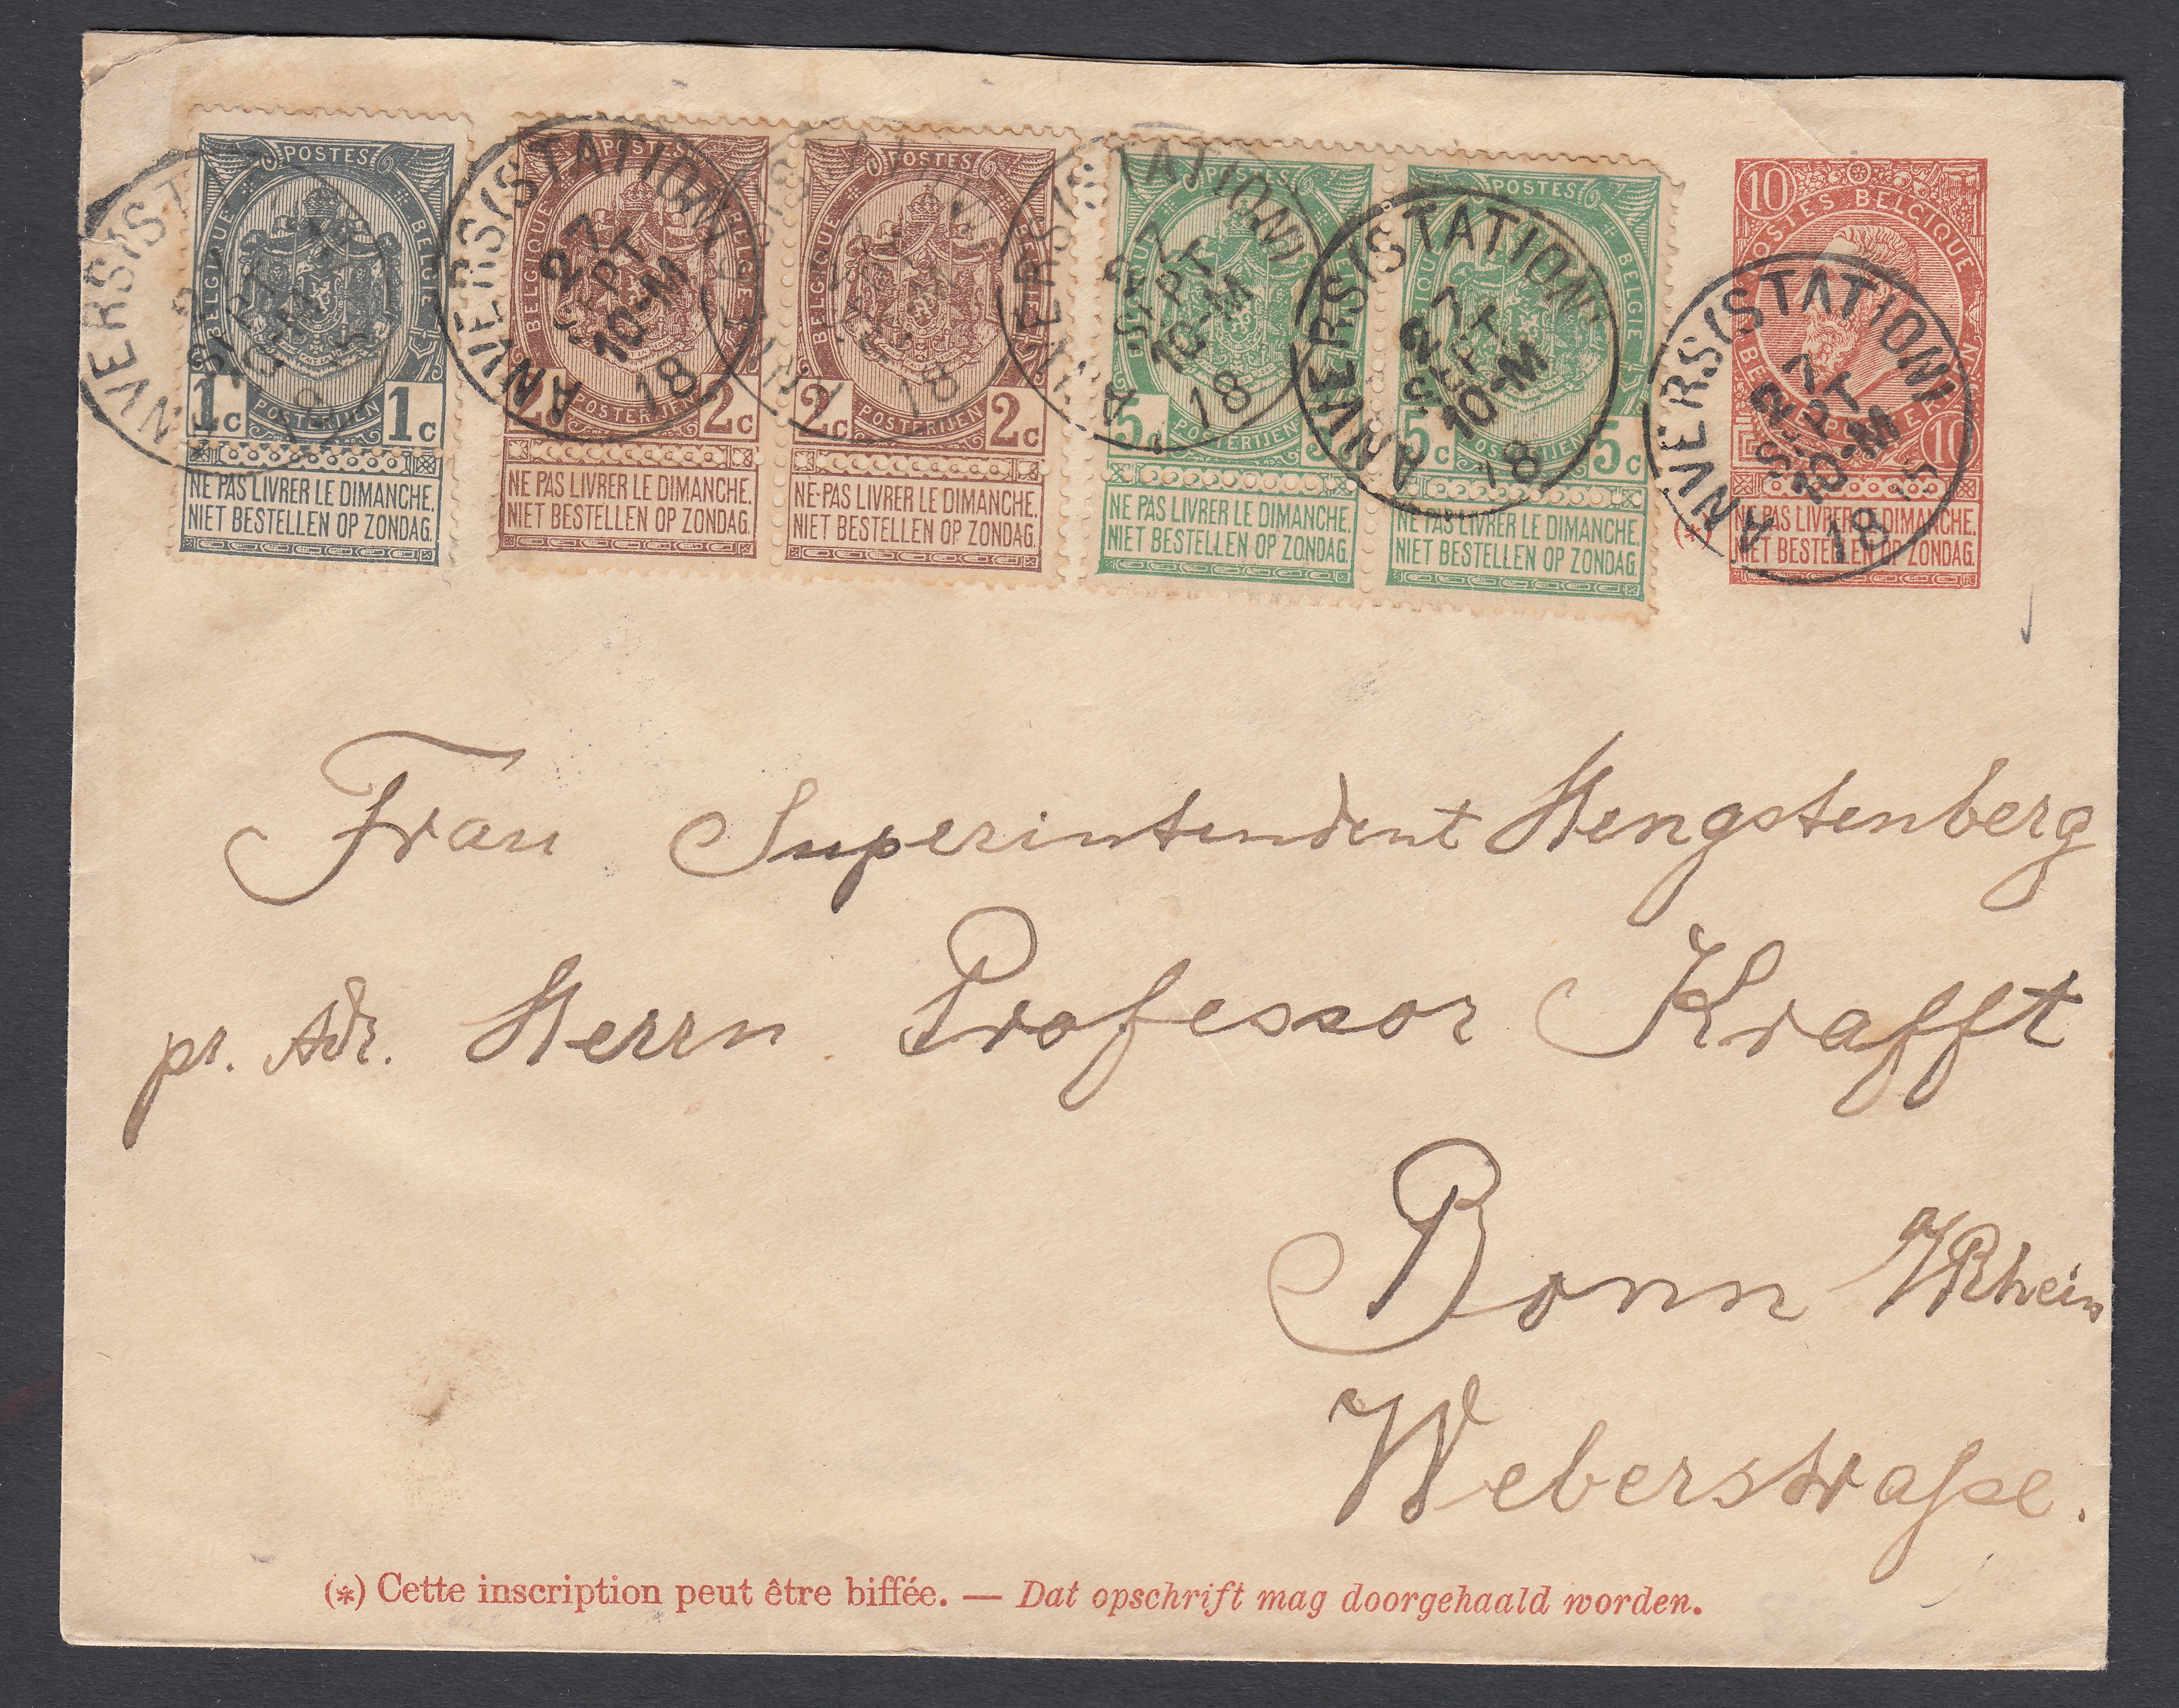 POSTES
BELGIQUE BELGIE
1c 1c
POSTERIJEN
NE PAS LIVRER LE DIMANCHE.
NIET BESTELLEN OP ZONDAG.
POSTES
BELGIQUE BELGIE
2c 2c
POSTERIJEN
NE PAS LIVRER LE DIMANCHE.
NIET BESTELLEN OP ZONDAG.
POSTES
BELGIQUE BELGIE
2c 2c
POSTERIJEN
NE PAS LIVRER LE DIMANCHE.
NIET BESTELLEN OP ZONDAG.
POSTES
5c
POSTERIJEN
NE PAS LIVRER LE DIMANCHE.
NIET BESTELLEN OP ZONDAG.
POSTES
BELGIE
5c 5c
POSTERIJEN
NE PAS LIVRER LE DIMANCHE.
NIET BESTELLEN OP ZONDAG.
10
POSTES BELGIQUE
10
(*) NE PAS LIVRER LE DIMANCHE.
NIET BESTELLEN OP ZONDAG.
ANVERS (STATION)
27
SEPT
10-M
18
ANVERS (STATION)
27
SEPT
10-M
18
ANVERS (STATION)
27
SEPT
10-M
18
ANVERS (STATION)
27
SEPT
10-M
18
Frau Superintendent Hengstenberg
pr. Adr. Herrn Professor Krafft
Bonn a/Rhein
Weberstraße.
(*) Cette inscription peut être biffée. — Dat opschrift mag doorgehaald worden.